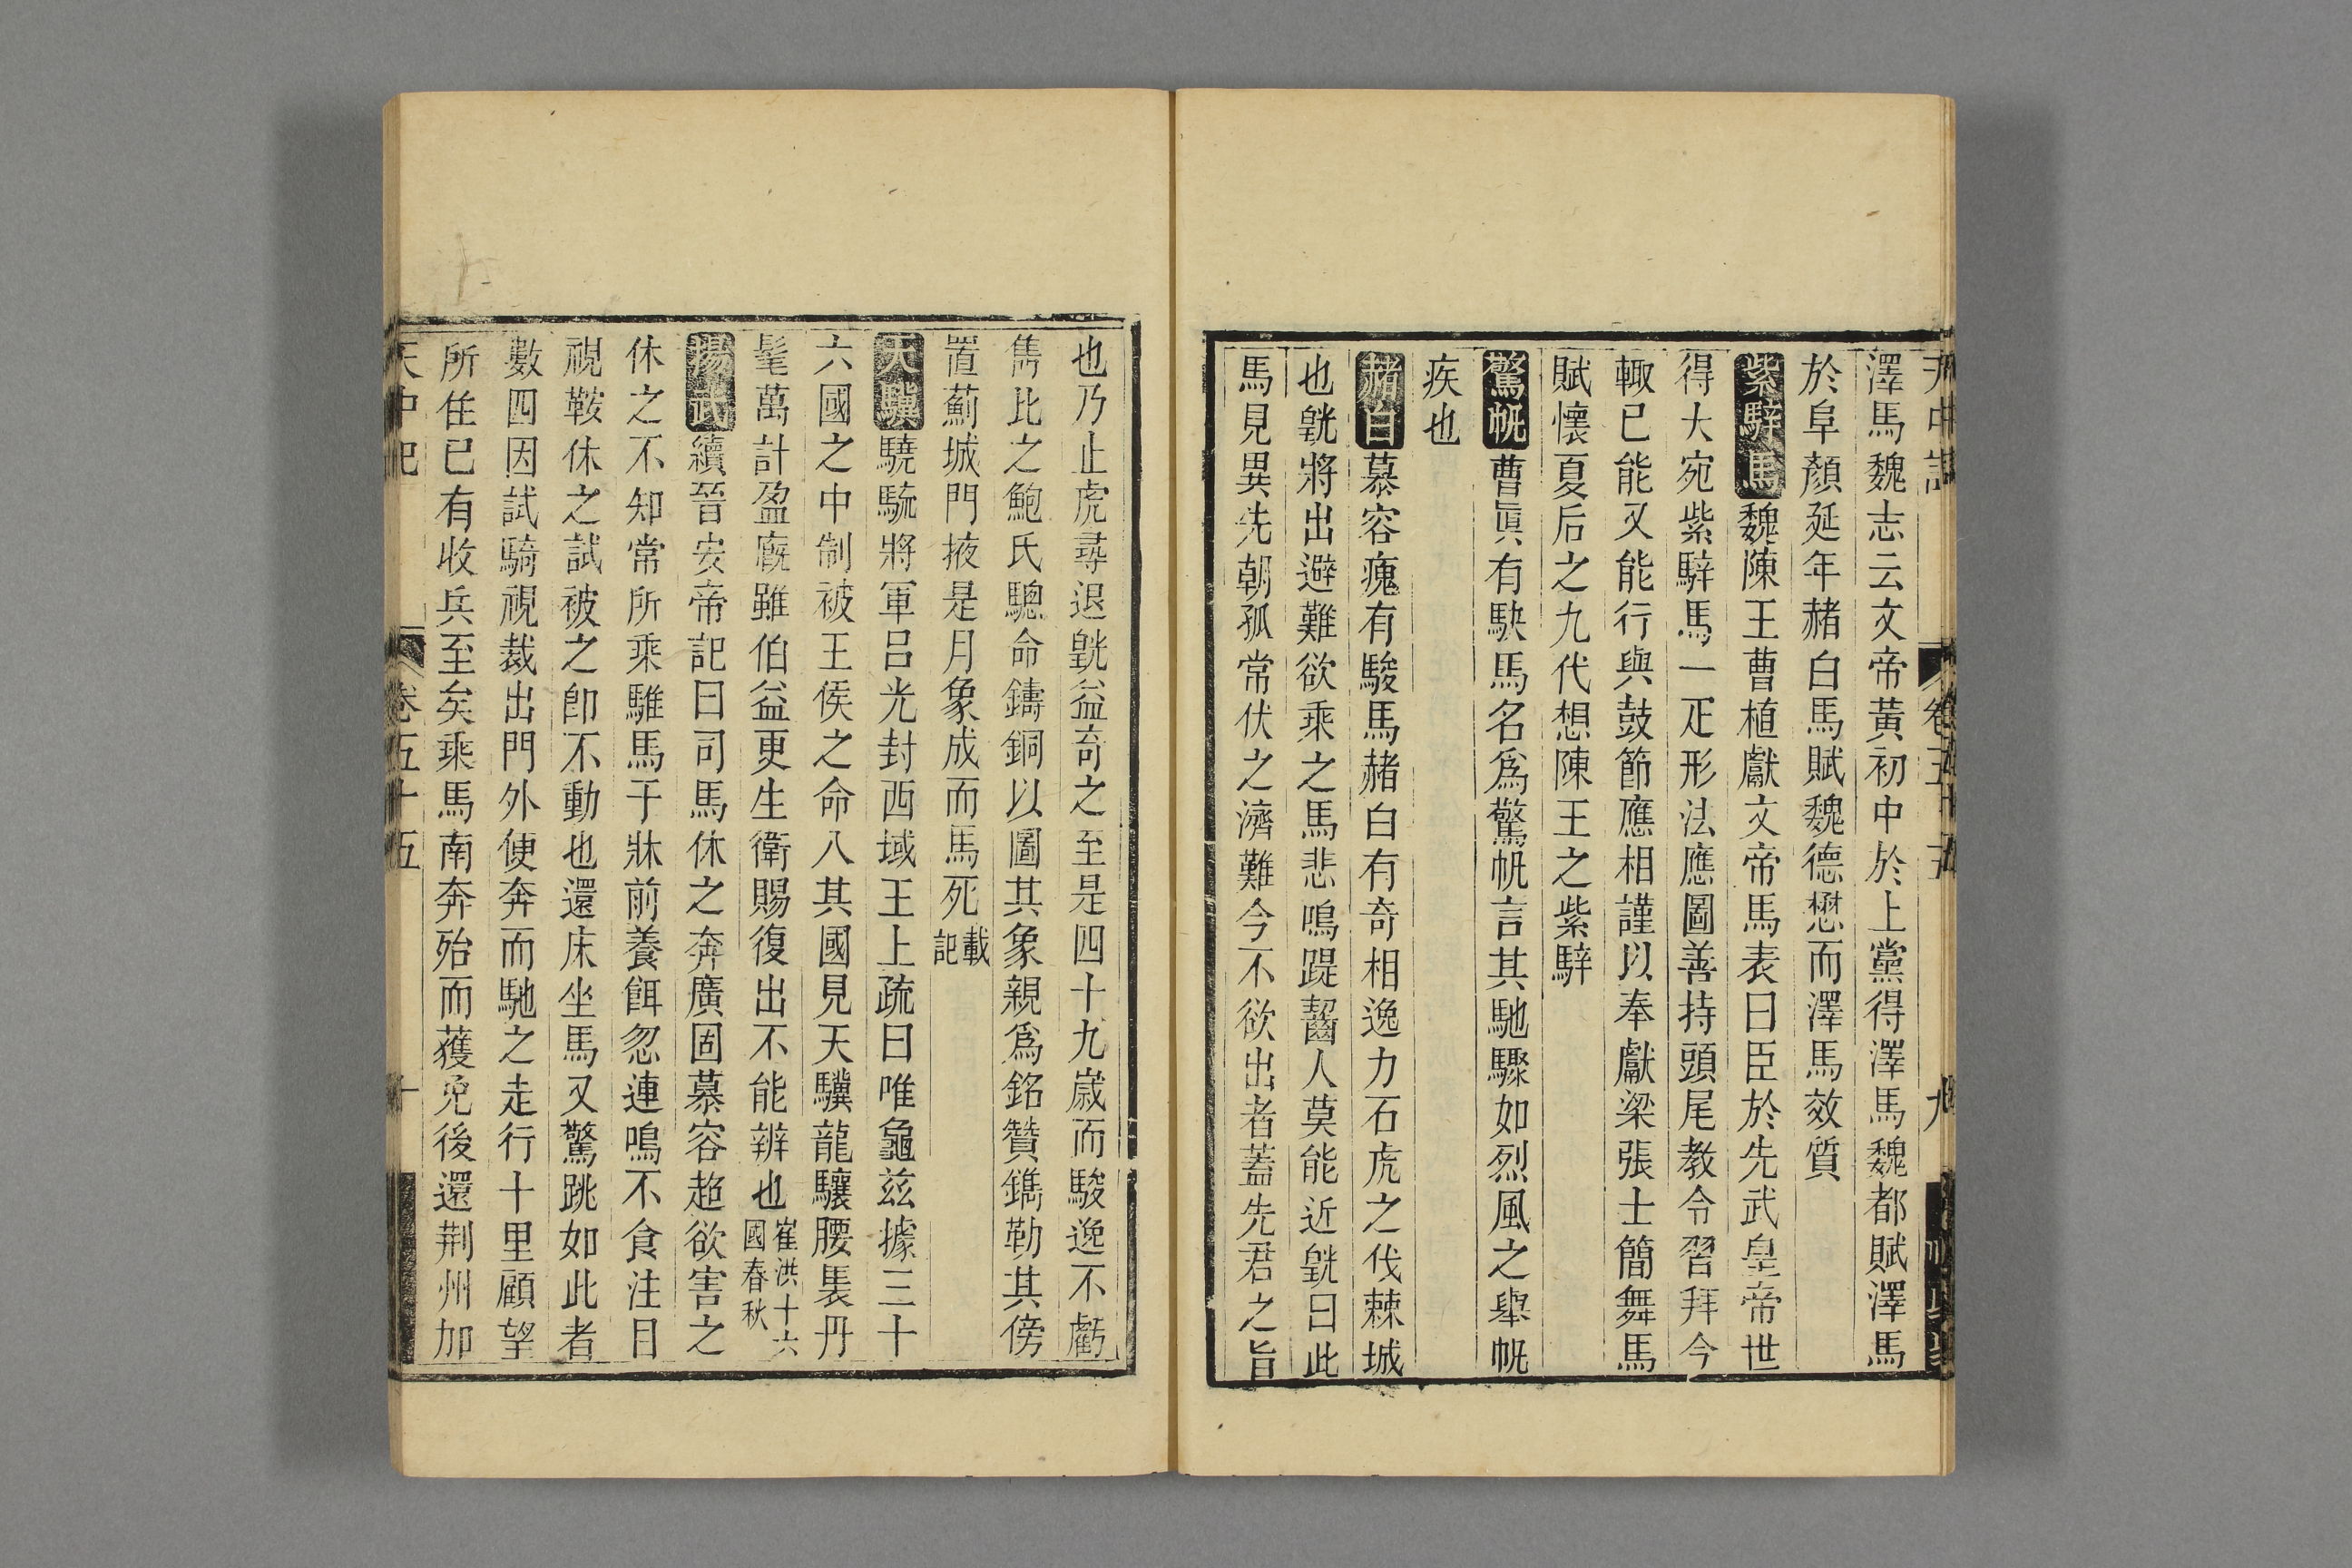 天中記 卷五十五 九
澤馬魏志云文帝黃初中於上黨得澤馬魏都賦澤馬
於阜顏延年赭白馬賦魏德懋而澤馬效質
紫騂馬魏陳王曹植獻文帝馬表曰臣於先武皇帝世
得大宛紫騂馬一疋形法應圖善持頭尾教令習拜今
輙已能又能行與鼓節應相謹以奉獻梁張士簡舞馬
賦懷夏后之九代想陳王之紫騂
驚帆曹眞有駃馬名爲驚帆言其馳驟如烈風之舉帆
疾也
赭白慕容瘣有駿馬赭白有奇相逸力石虎之伐棘城
也皝將出避難欲乘之馬悲鳴踶齧人莫能近皝曰此
馬見異先朝孤常伏之濟難今不欲出者蓋先君之旨
也乃止虎尋退皝益奇之至是四十九歲而駿逸不虧
儁比之鮑氏驄命鑄銅以圖其象親爲銘贊鐫勒其傍
置薊城門掖是月象成而馬死載記
天驥驍騎將軍呂光封西域王上疏曰唯龜茲據三十
六國之中制被王侯之命八其國見天驥龍驤腰褭丹
髦萬計盈廐雖伯益更生衛賜復出不能辨也崔洪十六國春秋
揚武續晉安帝記曰司馬休之奔廣固慕容超欲害之
休之不知常所乘騅馬于牀前養餌忽連鳴不食注目
視鞍休之試被之卽不動也還床坐馬又驚跳如此者
數四因試騎視裁出門外便奔而馳之走行十里顧望
所住已有收兵至矣乘馬南奔殆而獲免後還荆州加
天中記 卷五十五 十